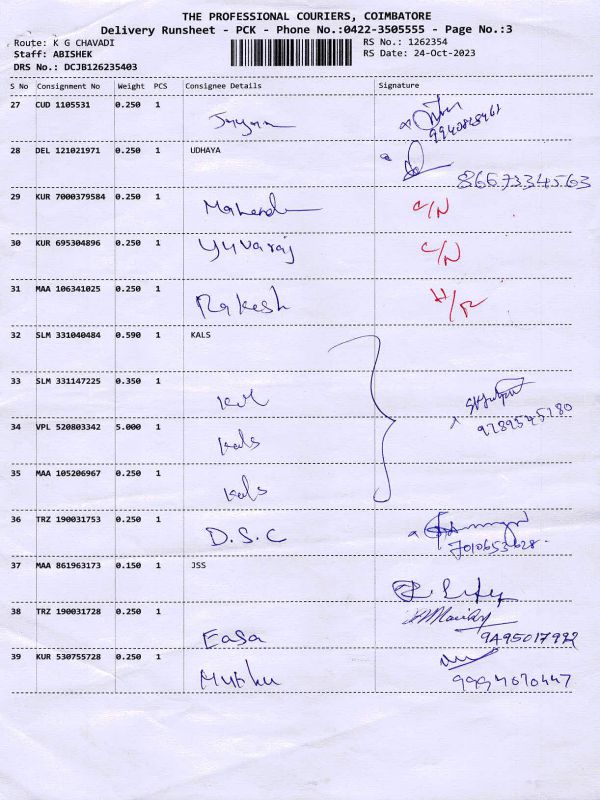 THE PROFESSIONAL COURIERS, COIMBATORE
Delivery Runsheet - PCK - Phone No.:0422-3505555 - Page No.:3
Route: K G CHAVADI
Staff: ABISHEK
DRS No.: DCJB126235403
RS No.: 1262354
RS Date: 24-Oct-2023
S No Consignment No Weight PCS Consignee Details Signature
27 CUD 1105531 0.250 1
28 DEL 121021971 0.250 1 UDHAYA
8667334563
29 KUR 7000379584 0.250 1 Mahendra C/N
30 KUR 695304896 0.250 1 Yuvaraj C/N
31 MAA 106341025 0.250 1 Rakesh
32 SLM 331040484 0.590 1 KALS
33 SLM 331147225 0.350 1
34 VPL 520803342 5.000 1 Kals
35 MAA 105206967 0.250 1 Kals
36 TRZ 190031753 0.250 1 D.S.C
37 MAA 861963173 0.150 1 JSS
38 TRZ 190031728 0.250 1 Easa
39 KUR 530755728 0.250 1 Muthu
9994070447